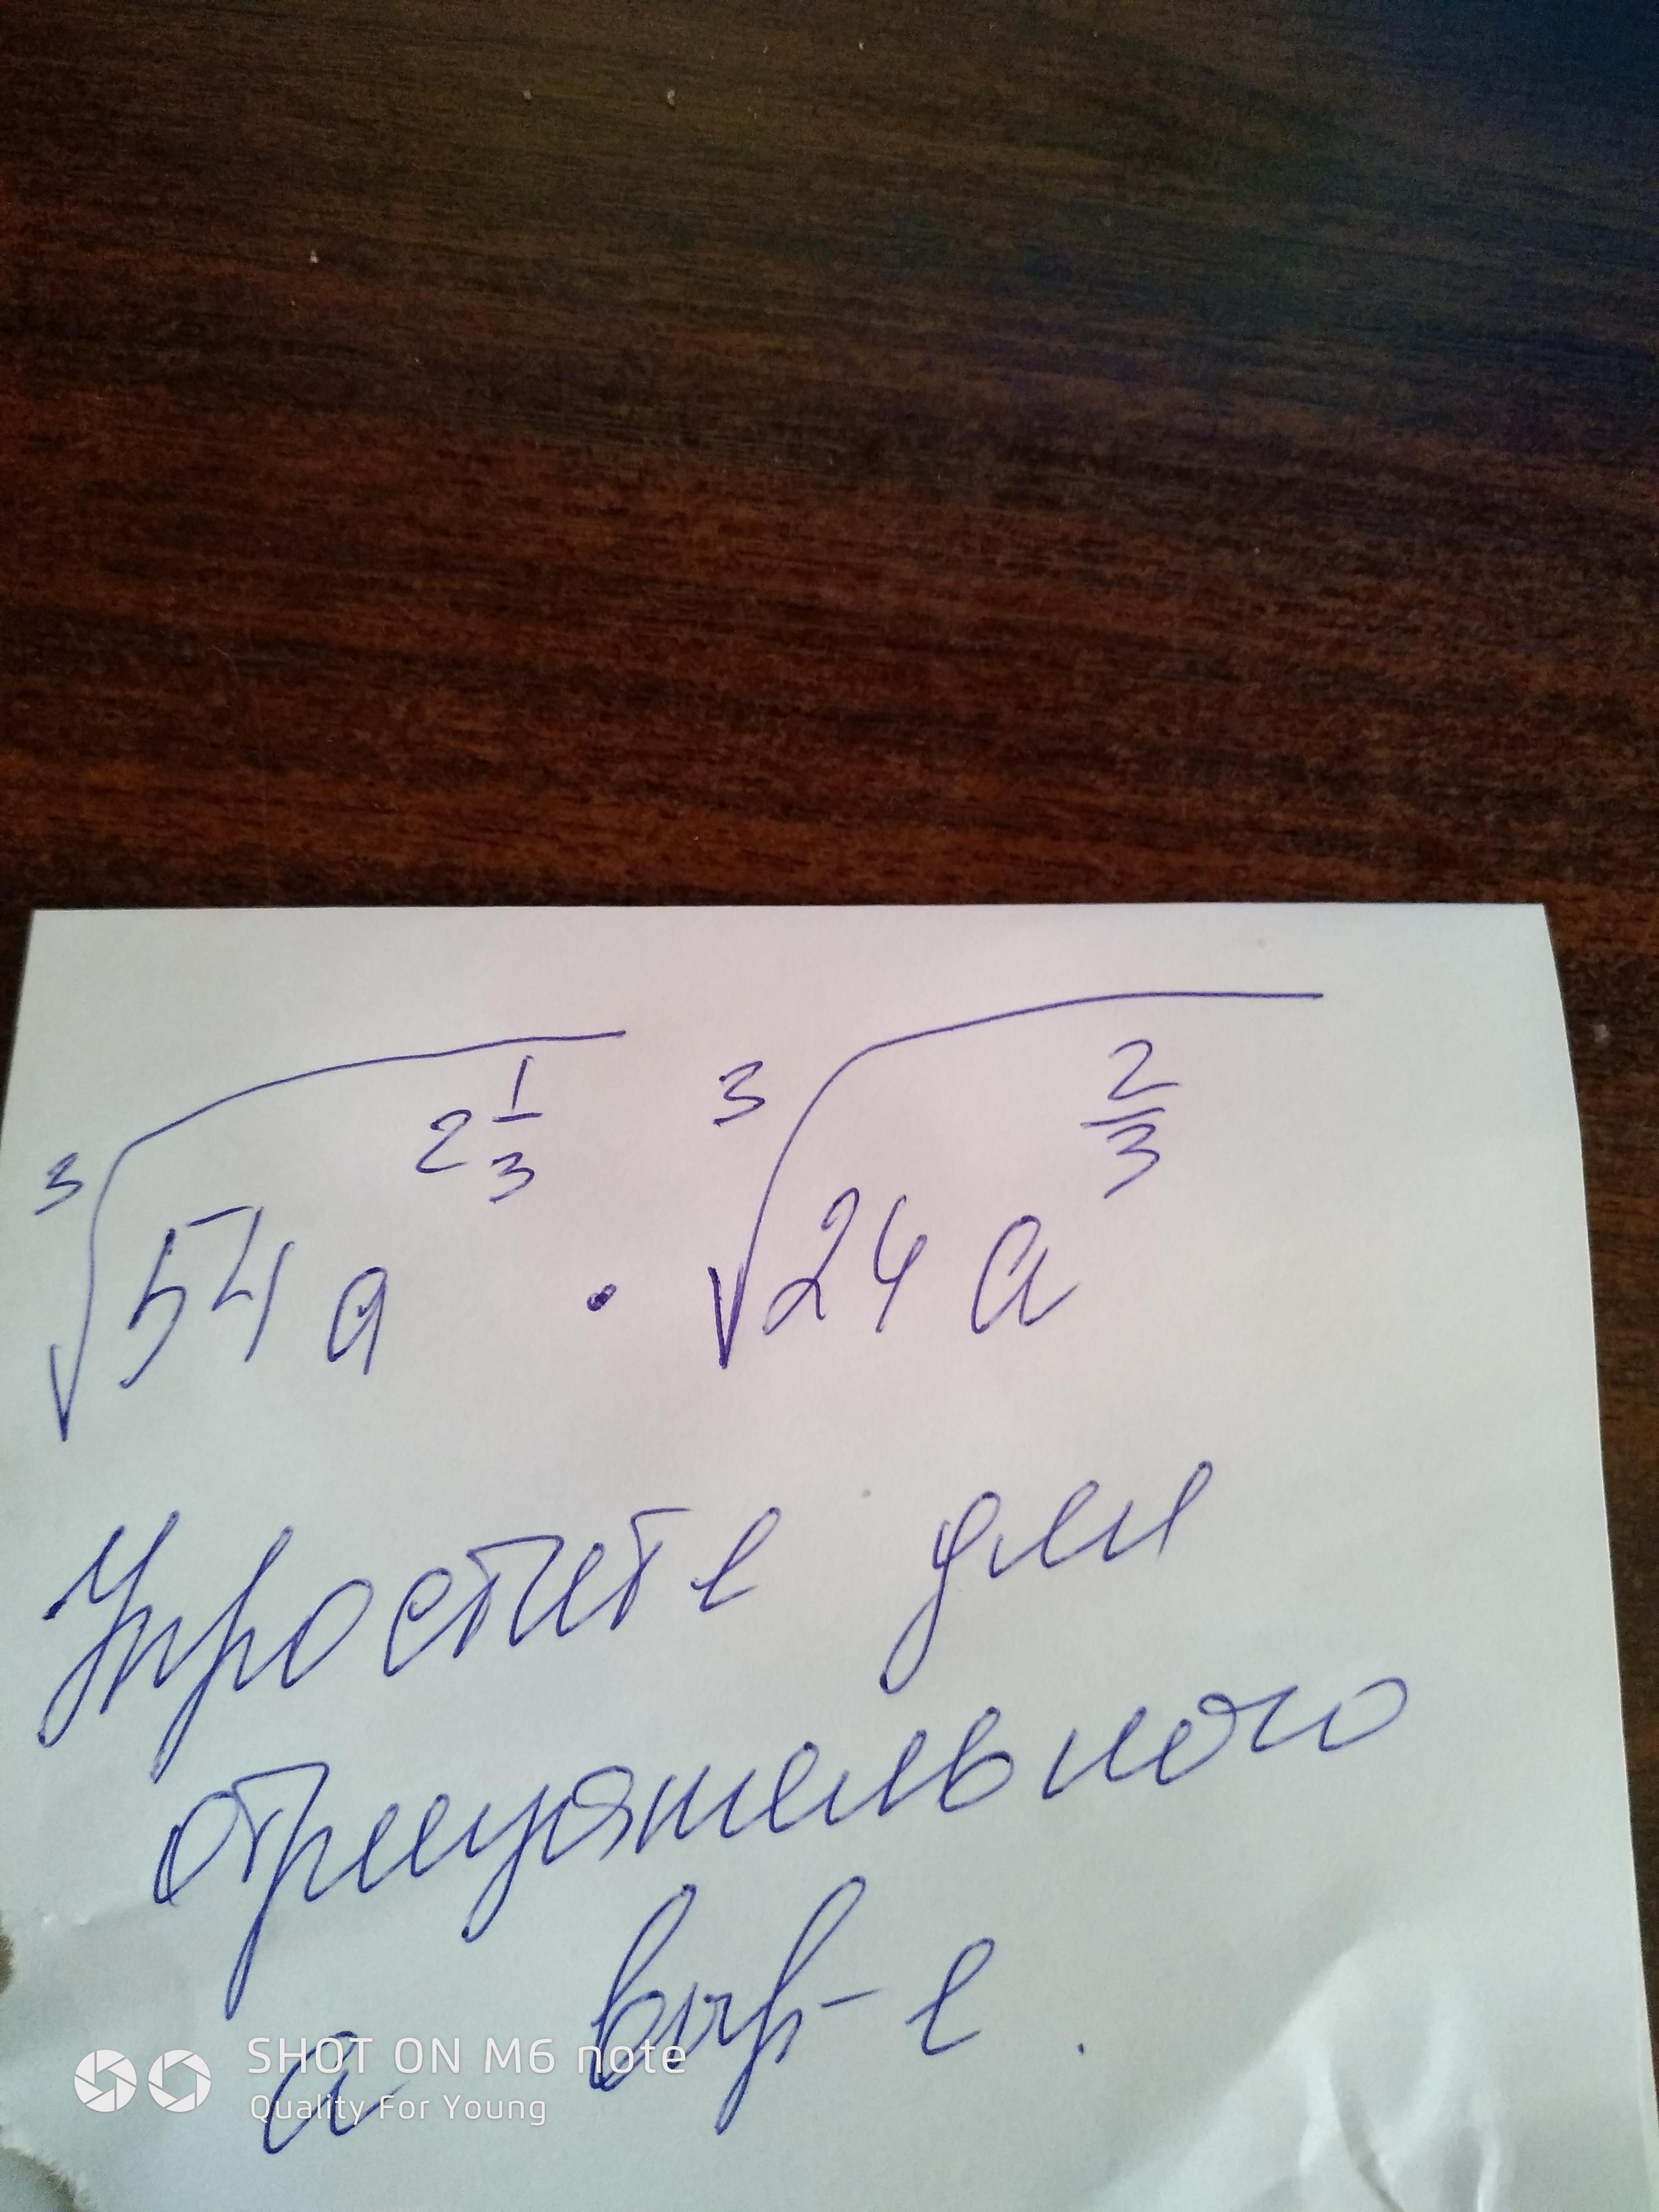 ∛54a^2 1/3 · ∛24a^2/3
Упростите для
отрицательного
а выр-е.
SHOT ON M6 note
Quality For Young